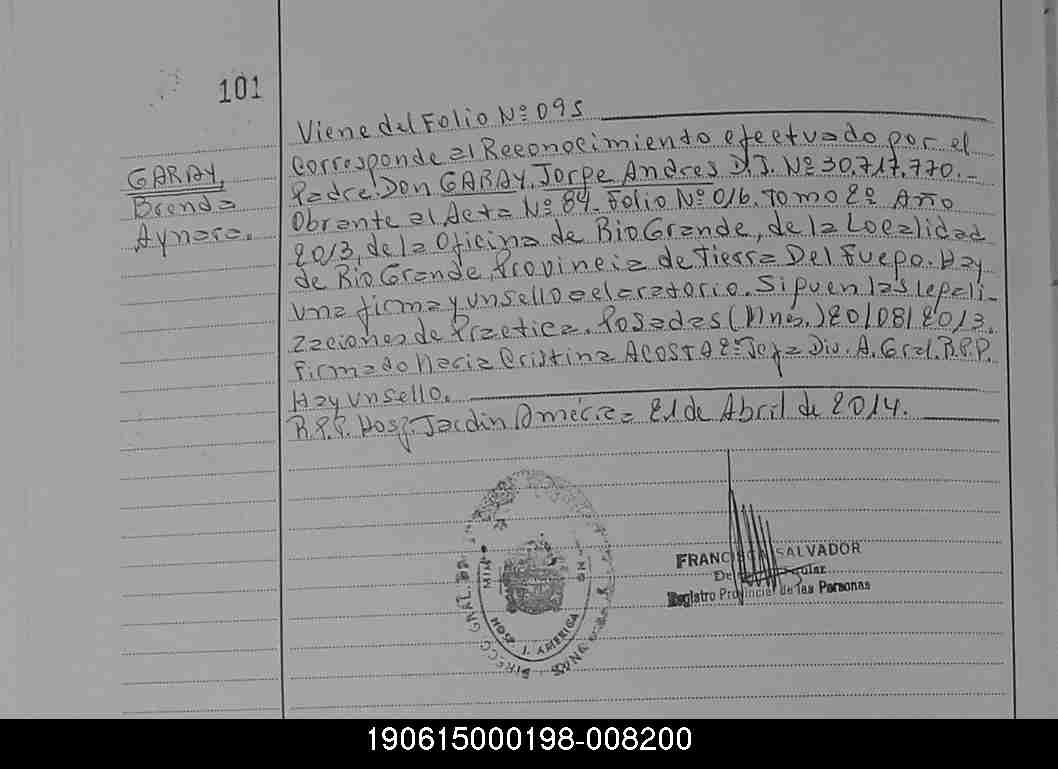 101
GARAY,
Brenda
Aynara.
Viene del Folio Nº 095
Corresponde al Reconocimiento efectuado por el
Padre: Don GARAY, Jorge Andres D.I. Nº 30.717.770.-
Obrante al Acta Nº 84. Folio Nº 016. Tomo 2º Año
2013, de la Oficina de Rio Grande, de la Localidad
de Rio Grande, Provincia de Tierra Del Fuego. Hay
una firma y un sello aclaratorio. Siguen las legali-
zaciones de Practica. Posadas (Mnes.) 20/08/2013.
Firmado Maria Cristina ACOSTA 2º Jefa Div. A. Gral. R.P.P.
Hay un sello.
R.P.P. Hosp. Jardin América 21 de Abril de 2014.
DIRECC. GRAL.
HOSP. J. AMERICA
FRANCISCO SALVADOR
Registro Provincial de las Personas
190615000198-008200